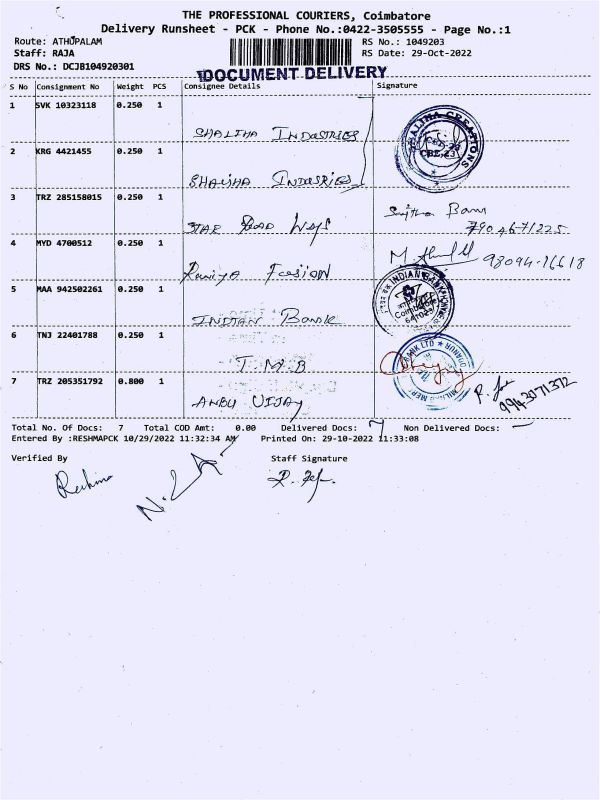 THE PROFESSIONAL COURIERS, Coimbatore
Delivery Runsheet - PCK - Phone No.:0422-3505555 - Page No.:1
Route: ATHUPALAM RS No.: 1049203
Staff: RAJA RS Date: 29-Oct-2022
DRS No.: DCJB104920301
DOCUMENT DELIVERY
S No Consignment No Weight PCS Consignee Details Signature
1 SVK 10323118 0.250 1
SHALIHA INDUSTRIES
SHALIHA CREATIONS
2 KRG 4421455 0.250 1
SHALIHA INDUSRIES
3 TRZ 285158015 0.250 1
STAR ROAD WAYS
790 4671225
4 MYD 4700512 0.250 1
FASION
98094-16618
INDIAN BANK
5 MAA 942502261 0.250 1
INDIAN BANK
Coimbatore
6 TNJ 22401788 0.250 1
T.M.B
7 TRZ 205351792 0.800 1
ANBU VIJAY
9943071372
Total No. Of Docs: 7 Total COD Amt: 0.00 Delivered Docs: 7 Non Delivered Docs: —
Entered By :RESHMAPCK 10/29/2022 11:32:34 AM Printed On: 29-10-2022 11:33:08
Verified By Staff Signature